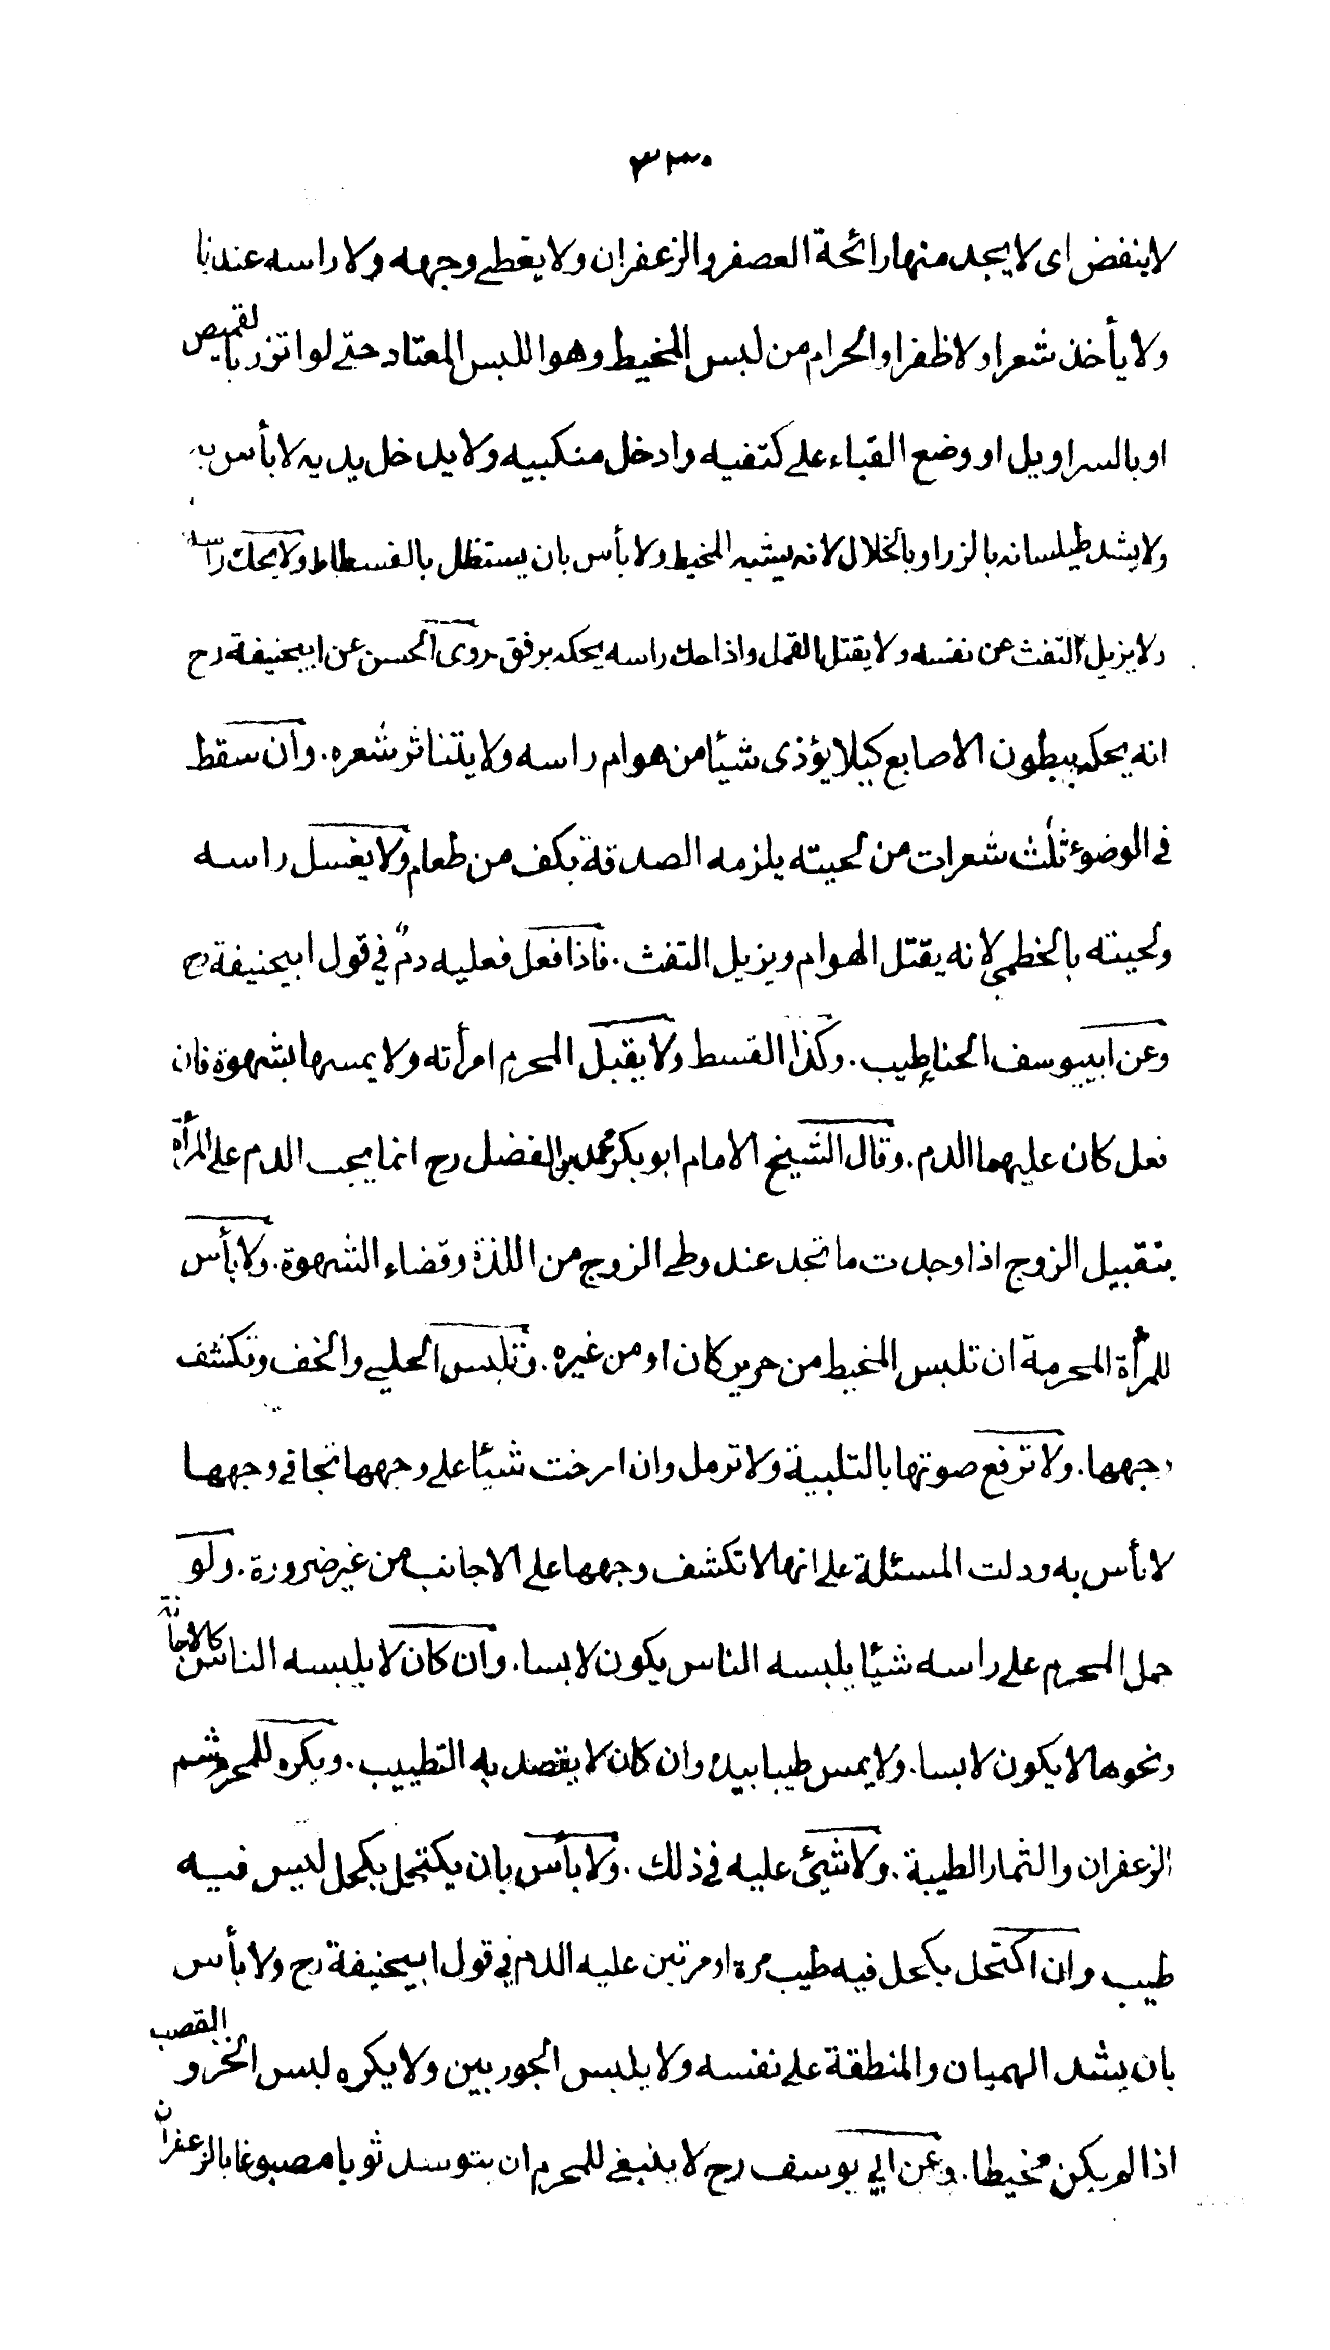 ٣٣٠
لا ينفض اى لا يجد منها رائحة العصفر والزعفران ولا يغطے وجهه ولا راسه عندنا
ولا يأخذ شعرا ولا ظفرا والحرام من لبس المخيط وهو اللبس المعتاد حتے لو اتزر بالقميص
او بالسراويل او وضع القباء علے كتفيه وادخل منكبيه ولا يدخل يديه لا بأس به
ولا يشد طيلسانه بالزر او بالخلال لانه يشبه المخيط ولا بأس بان يستظل بالفسطاط ولا يحك راسه
ولا يزيل التفث عن نفسه ولا يقتل القمل واذا حك راسه يحكه برفق روى الحسن عن ابيحنيفة رح
انه يحكه ببطون الاصابع كيلا يؤذى شيئا من هوام راسه ولا يتناثر شعره ۰ وان سقط
فے الوضوء ثلٰث شعرات من لحيته يلزمه الصدقة بكف من طعام ولا يغسل راسه
ولحيته بالخطمي لانه يقتل الهوام ويزيل التفث ۰ فاذا فعل فعليه دمٌ فے قول ابيحنيفة رح
وعن ابييوسف الحناء طيب ۰ وكذا القسط ولا يقبل المحرم امرأته ولا يمسها بشهوة فان
فعل كان عليهما الدم ۰ وقال الشيخ الامام ابو بكر محمد بن الفضل رح انما يجب الدم علے المرأة
بتقبيل الزوج اذا وجدت ما تجد عند وطے الزوج من اللذة وقضاء الشهوة ۰ ولا بأس
للمرأة المحرمة ان تلبس المخيط من حرير كان او من غيره ۰ وتلبس الحلے والخف وتكشف
وجهها ۰ ولا ترفع صوتها بالتلبية ولا ترمل وان ارخت شيئا علے وجهها تجافے وجهها
لا بأس به ودلت المسئلة علے انها لا تكشف وجهها علے الاجانب من غير ضرورة ۰ ولو
حمل المحرم علے راسه شيئا يلبسه الناس يكون لابسا ۰ وان كان لا يلبسه الناس كالاجانة
ونحوها لا يكون لابسا ۰ ولا يمس طيبا بيده وان كان لا يقصد به التطييب ۰ ويكره للمحرم شم
الزعفران والثمار الطيبة ۰ ولا شيئ عليه فے ذلك ۰ ولا بأس بان يكتحل بكحل ليس فيه
طيب وان اكتحل بكحل فيه طيب مرة او مرتين عليه الدم فے قول ابيحنيفة رح ولا بأس
بان يشد الهميان والمنطقة علے نفسه ولا يلبس الجوربين ولا يكره لبس الخز والقصب
اذا لم يكن مخيطا ۰ وعن ابي يوسف رح لا ينبغے للمحرم ان يتوسد ثوبا مصبوغا بالزعفران